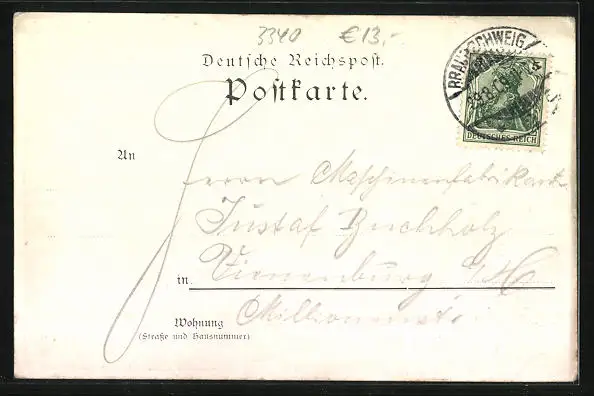 3340 €13,-
Deutsche Reichspost.
Postkarte.
BRAUNSCHWEIG
DEUTSCHES REICH
An
Herrn Maschinenfabrikant
Gustaf Buchholz
in Vienenburg a/H
Wohnung
(Straße und Hausnummer)